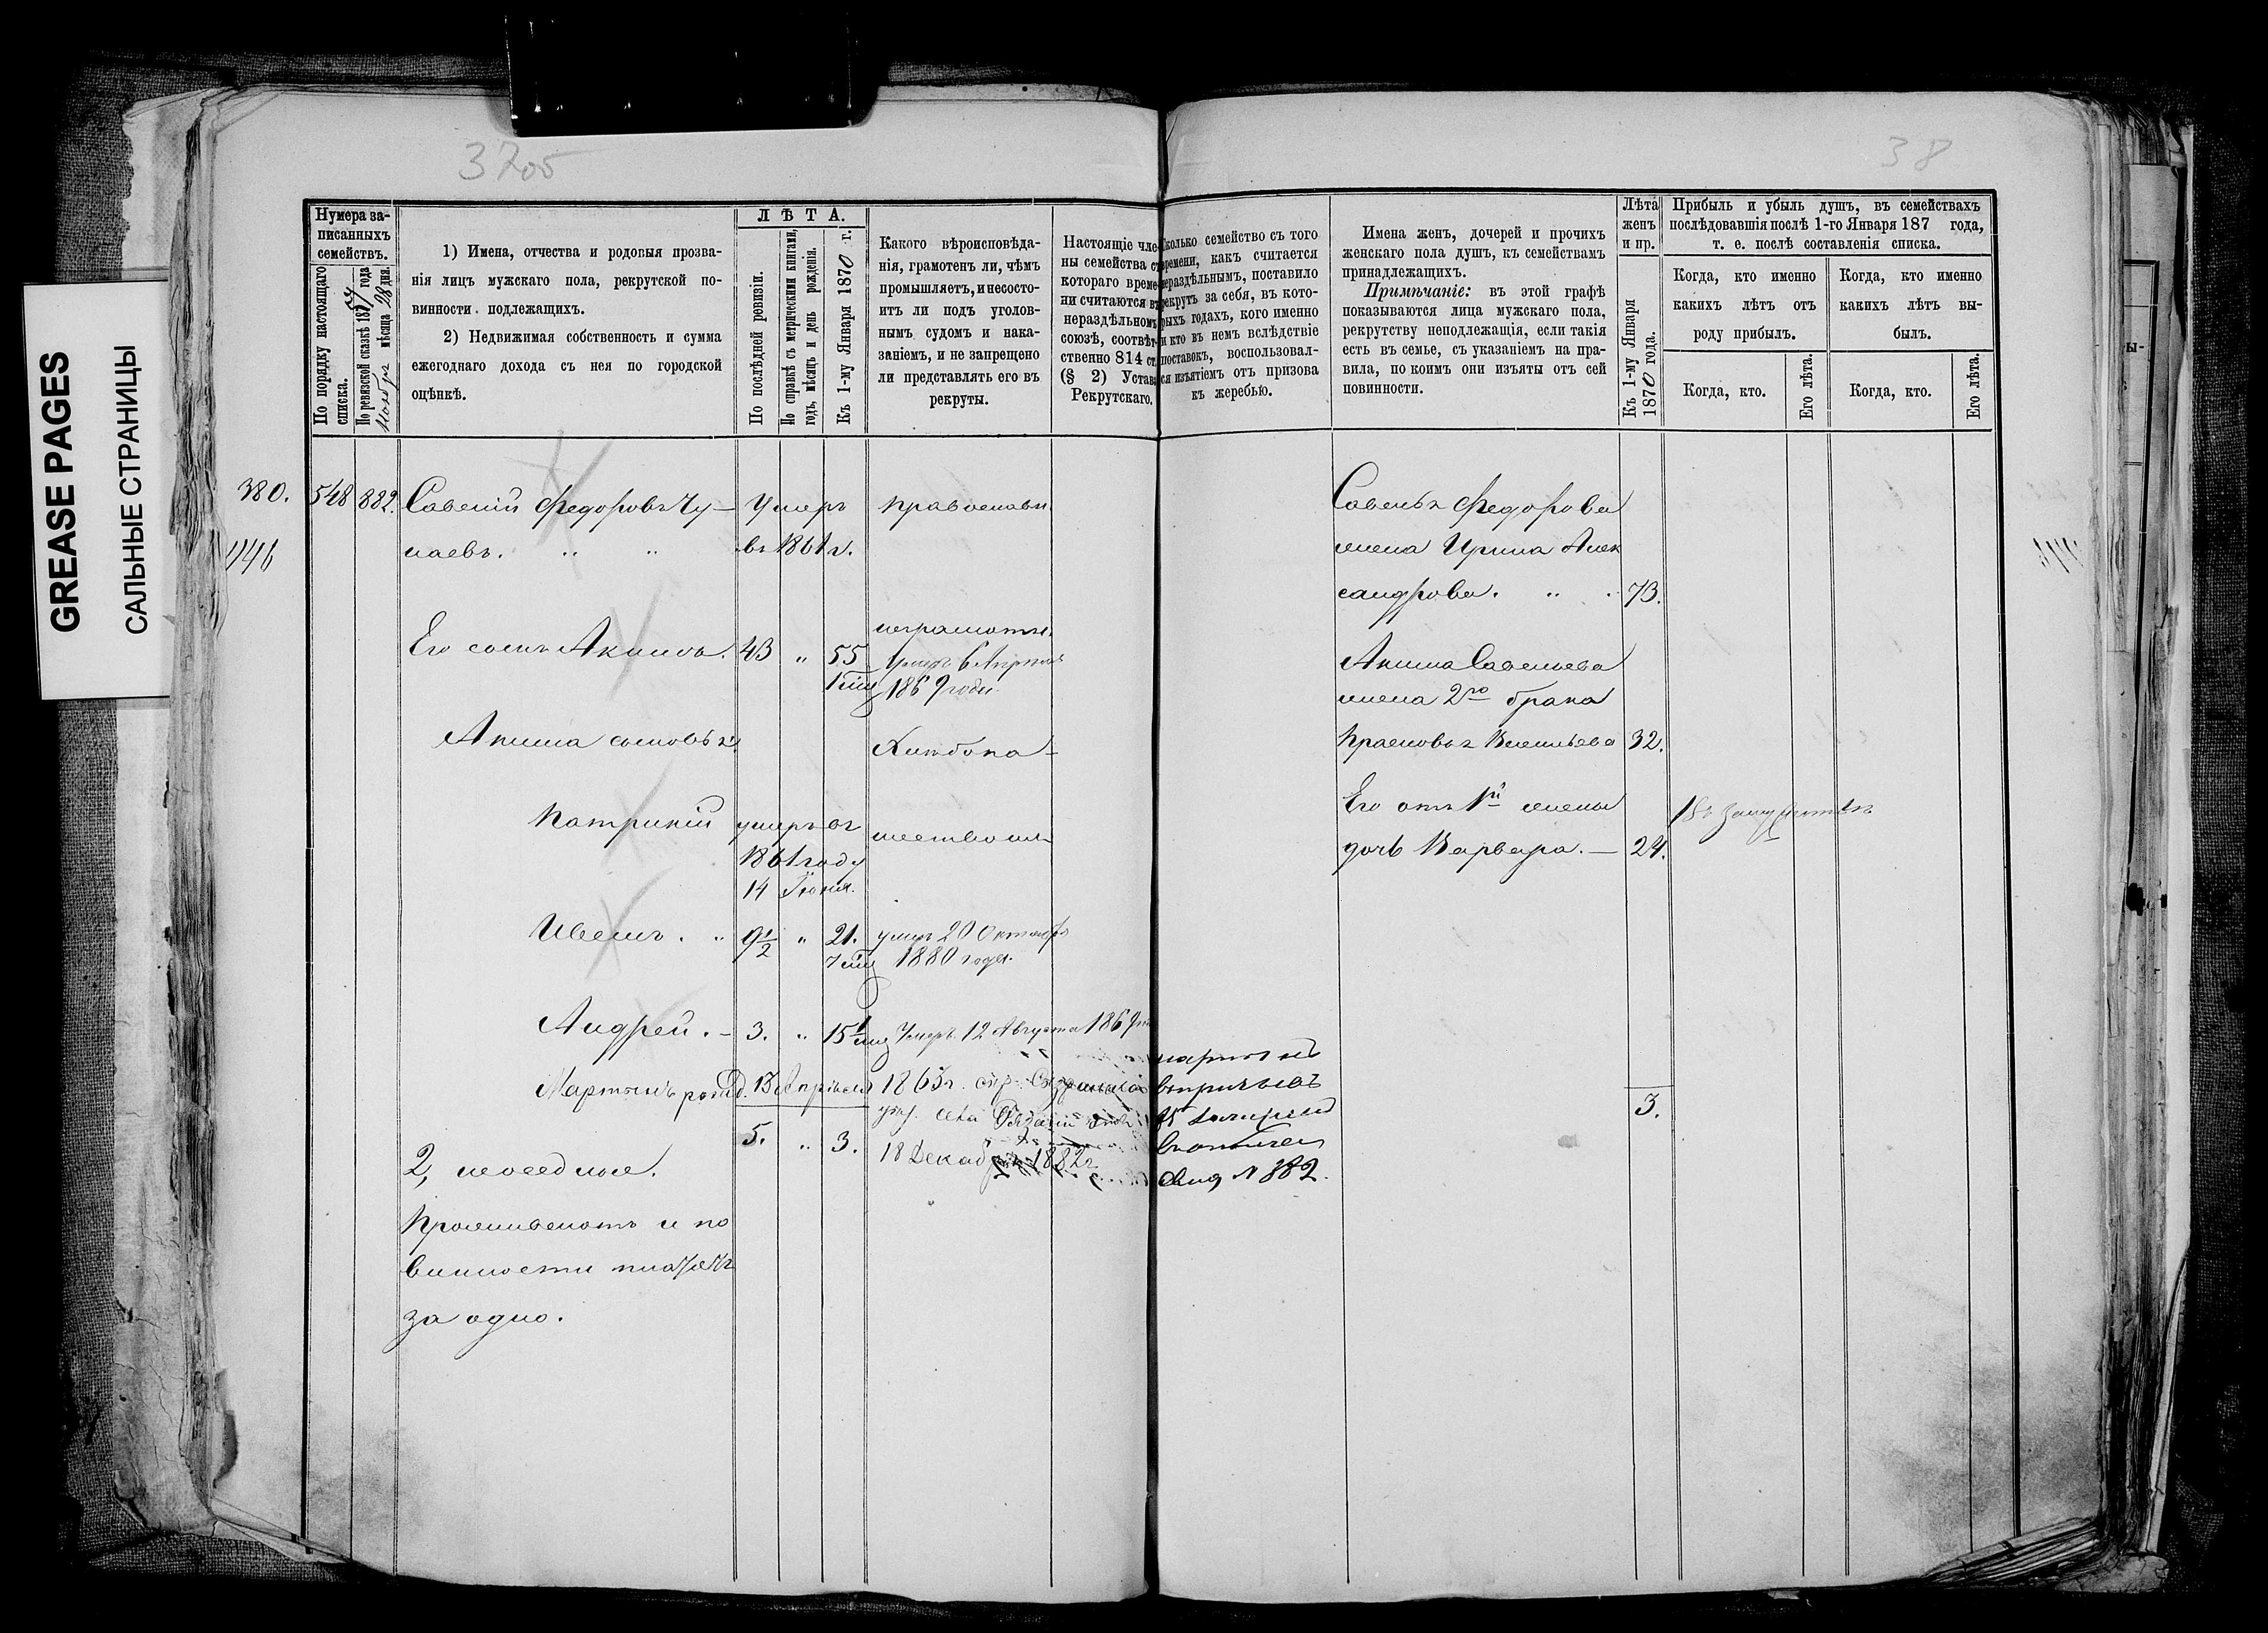 3705
38
GREASE PAGES
САЛЬНЫЕ СТРАНИЦЫ
Нумера за-
писанныхъ
семействъ.
По порядку настоящаго
списка.
По ревизской сказкѣ 187 года
мѣсяца 28 дня.
1) Имена, отчества и родовыя прозва-
нія лицъ мужскаго пола, рекрутской по-
винности подлежащихъ.
2) Недвижимая собственность и сумма
ежегоднаго дохода съ нея по городской
оцѣнкѣ.
ЛѢТА.
По послѣдней ревизіи.
По справкѣ съ метрическими книгами,
годъ, мѣсяцъ и день рожденія.
Къ 1-му Января 1870 г.
Какого вѣроисповѣда-
нія, грамотенъ ли, чѣмъ
промышляетъ, и несосто-
итъ ли подъ уголов-
нымъ судомъ и нака-
заніемъ, и не запрещено
ли представлять его въ
рекруты.
Настоящіе чле-
ны семейства съ
котораго време-
ни считаются въ
нераздѣльномъ
союзѣ, соотвѣт-
ственно 814 ст.
(§ 2) Устава
Рекрутскаго.
Сколько семейство съ того
времени, какъ считается
нераздѣльнымъ, поставило
рекрутъ за себя, въ кото-
рыхъ годахъ, кого именно
и кто въ немъ вслѣдствіе
поставокъ, воспользовал-
ся изъятіемъ отъ призова
къ жеребью.
Имена женъ, дочерей и прочихъ
женскаго пола душъ, къ семействамъ
принадлежащихъ.
Примѣчаніе: въ этой графѣ
показываются лица мужскаго пола,
рекрутству неподлежащія, если такія
есть въ семье, съ указаніемъ на пра-
вила, по коимъ они изъяты отъ сей
повинности.
Лѣта
женъ
и пр.
Къ 1-му Января
1870 года.
Прибыль и убыль душъ, въ семействахъ
послѣдовавшія послѣ 1-го Января 187 года,
т. е. послѣ составленія списка.
Когда, кто именно
какихъ лѣтъ отъ
роду прибылъ.
Когда, кто именно
какихъ лѣтъ вы-
былъ.
Когда, кто.
Его лѣта.
Когда, кто.
Его лѣта.
380. 548 882. Савелій Федоровъ Чу-
наевъ.
Умеръ
въ 1861 г.
православн.
Савелья Федорова
жена Ирина Алек
сандрова. 73.
Его сынъ Акимъ. 43 " 55
неграмотн.
Умеръ 6 Апреля
1869 года.
Акима Савельева
жена 2го брака
Прасковья Васильева 32.
Акима сыновья
Хлѣбопа-
шествомъ
Патрикій умеръ въ
1861 году
14 Іюня.
Его отъ 1й жены
дочь Варвара. 24.
Иванъ. 9½ " 21. умеръ 20 Октября
1880 года.
Андрей. 3. " 15 Умеръ 12 Августа 1869
Мартынъ рожд. 13 Апрѣля 1865г.
18 Декабря 1882г.
№ 882.
5. " 3.
3.
2, неоседлые.
Проживаютъ и по
винности платятъ
за одно.